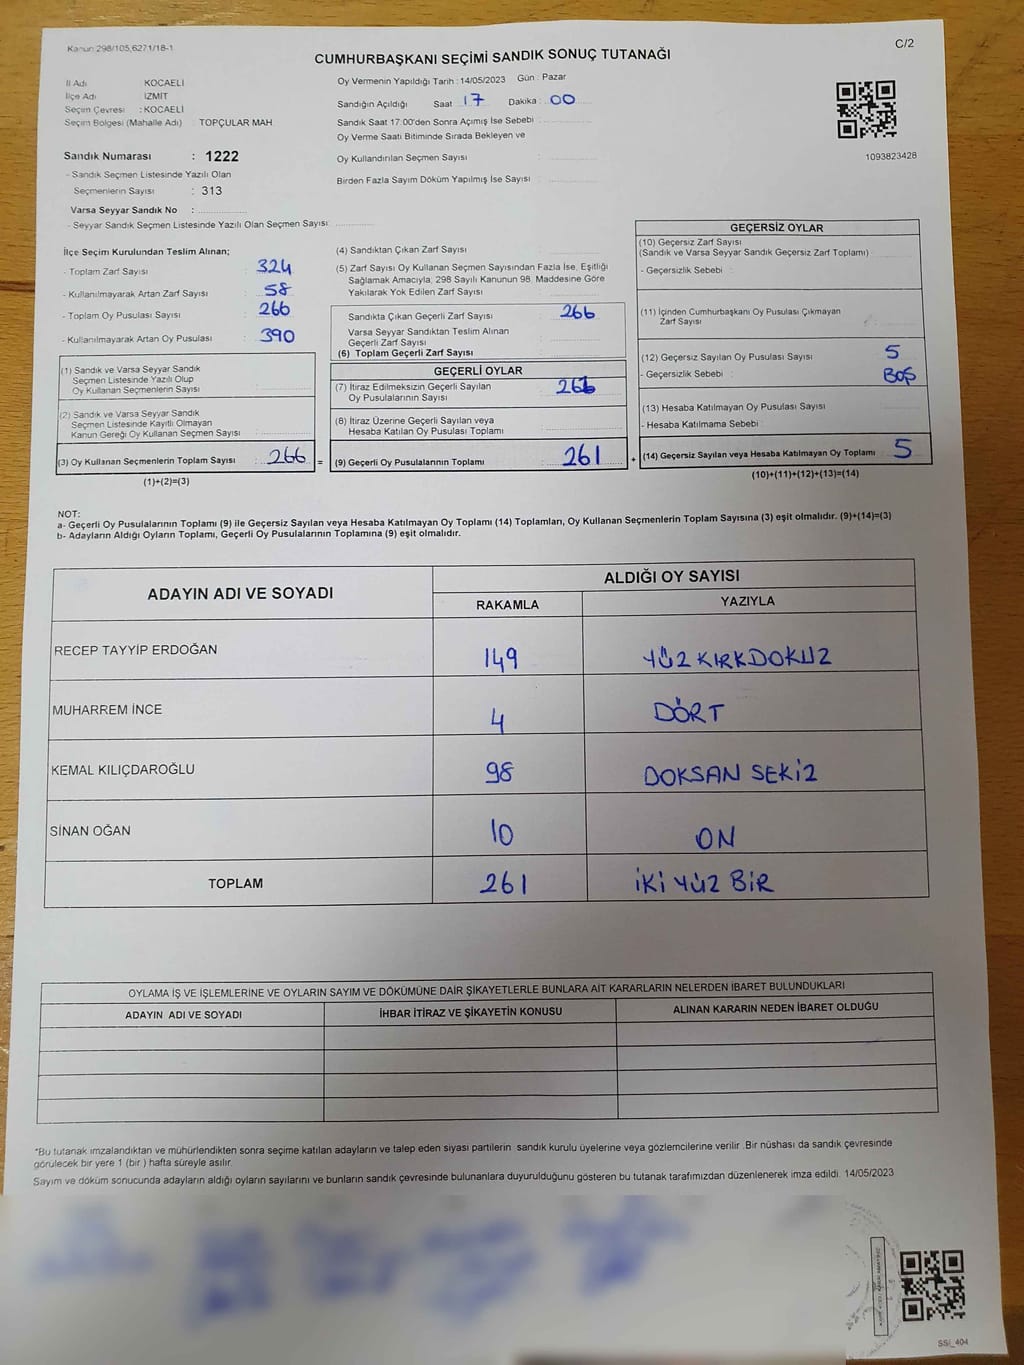 Kanun 298/105,6271/18-1
C/2
CUMHURBAŞKANI SEÇİMİ SANDIK SONUÇ TUTANAĞI
İl Adı KOCAELİ
İlçe Adı İZMİT
Seçim Çevresi : KOCAELİ
Seçim Bölgesi (Mahalle Adı) TOPÇULAR MAH.
Oy Vermenin Yapıldığı Tarih : 14/05/2023 Gün : Pazar
Sandığın Açıldığı Saat 17 Dakika : 00
Sandık Saat 17:00'den Sonra Açımış İse Sebebi :
Oy Verme Saati Bitiminde Sırada Bekleyen ve
Oy Kullandırılan Seçmen Sayısı :
Birden Fazla Sayım Döküm Yapılmış İse Sayısı :
1093823428
Sandık Numarası : 1222
- Sandık Seçmen Listesinde Yazılı Olan
Seçmenlerin Sayısı : 313
Varsa Seyyar Sandık No :
- Seyyar Sandık Seçmen Listesinde Yazılı Olan Seçmen Sayısı :
İlçe Seçim Kurulundan Teslim Alınan;
- Toplam Zarf Sayısı : 324
- Kullanılmayarak Artan Zarf Sayısı : 58
- Toplam Oy Pusulası Sayısı : 266
- Kullanılmayarak Artan Oy Pusulası : 390
(1) Sandık ve Varsa Seyyar Sandık
Seçmen Listesinde Yazılı Olup
Oy Kullanan Seçmenlerin Sayısı :
(2) Sandık ve Varsa Seyyar Sandık
Seçmen Listesinde Kayıtlı Olmayan
Kanun Gereği Oy Kullanan Seçmen Sayısı :
(3) Oy Kullanan Seçmenlerin Toplam Sayısı : 266 =
(1)+(2)=(3)
(4) Sandıktan Çıkan Zarf Sayısı :
(5) Zarf Sayısı Oy Kullanan Seçmen Sayısından Fazla İse, Eşitliği
Sağlamak Amacıyla; 298 Sayılı Kanunun 98. Maddesine Göre
Yakılarak Yok Edilen Zarf Sayısı :
Sandıkta Çıkan Geçerli Zarf Sayısı : 266
Varsa Seyyar Sandıktan Teslim Alınan
Geçerli Zarf Sayısı :
(6) Toplam Geçerli Zarf Sayısı :
GEÇERLİ OYLAR
(7) İtiraz Edilmeksizin Geçerli Sayılan
Oy Pusulalarının Sayısı : 266
(8) İtiraz Üzerine Geçerli Sayılan veya
Hesaba Katılan Oy Pusulası Toplamı :
(9) Geçerli Oy Pusulalarının Toplamı : 261 +
GEÇERSİZ OYLAR
(10) Geçersiz Zarf Sayısı
(Sandık ve Varsa Seyyar Sandık Geçersiz Zarf Toplamı) :
- Geçersizlik Sebebi :
(11) İçinden Cumhurbaşkanı Oy Pusulası Çıkmayan
Zarf Sayısı :
(12) Geçersiz Sayılan Oy Pusulası Sayısı : 5
- Geçersizlik Sebebi : BOŞ
(13) Hesaba Katılmayan Oy Pusulası Sayısı :
- Hesaba Katılmama Sebebi :
(14) Geçersiz Sayılan veya Hesaba Katılmayan Oy Toplamı : 5
(10)+(11)+(12)+(13)=(14)
NOT:
a- Geçerli Oy Pusulalarının Toplamı (9) ile Geçersiz Sayılan veya Hesaba Katılmayan Oy Toplamı (14) Toplamları, Oy Kullanan Seçmenlerin Toplam Sayısına (3) eşit olmalıdır. (9)+(14)=(3)
b- Adayların Aldığı Oyların Toplamı, Geçerli Oy Pusulalarının Toplamına (9) eşit olmalıdır.
ADAYIN ADI VE SOYADI ALDIĞI OY SAYISI
RAKAMLA YAZIYLA
RECEP TAYYİP ERDOĞAN 149 YÜZ KIRKDOKUZ
MUHARREM İNCE 4 DÖRT
KEMAL KILIÇDAROĞLU 98 DOKSAN SEKİZ
SİNAN OĞAN 10 ON
TOPLAM 261 İKİ YÜZ BİR
OYLAMA İŞ VE İŞLEMLERİNE VE OYLARIN SAYIM VE DÖKÜMÜNE DAİR ŞİKAYETLERLE BUNLARA AİT KARARLARIN NELERDEN İBARET BULUNDUKLARI
ADAYIN ADI VE SOYADI İHBAR İTİRAZ VE ŞİKAYETİN KONUSU ALINAN KARARIN NEDEN İBARET OLDUĞU
*Bu tutanak imzalandıktan ve mühürlendikten sonra seçime katılan adayların ve talep eden siyasi partilerin sandık kurulu üyelerine veya gözlemcilerine verilir. Bir nüshası da sandık çevresinde
görülecek bir yere 1 (bir ) hafta süreyle asılır.
Sayım ve döküm sonucunda adayların aldığı oyların sayılarını ve bunların sandık çevresinde bulunanlara duyurulduğunu gösteren bu tutanak tarafımızdan düzenlenerek imza edildi. 14/05/2023
SSİ_404